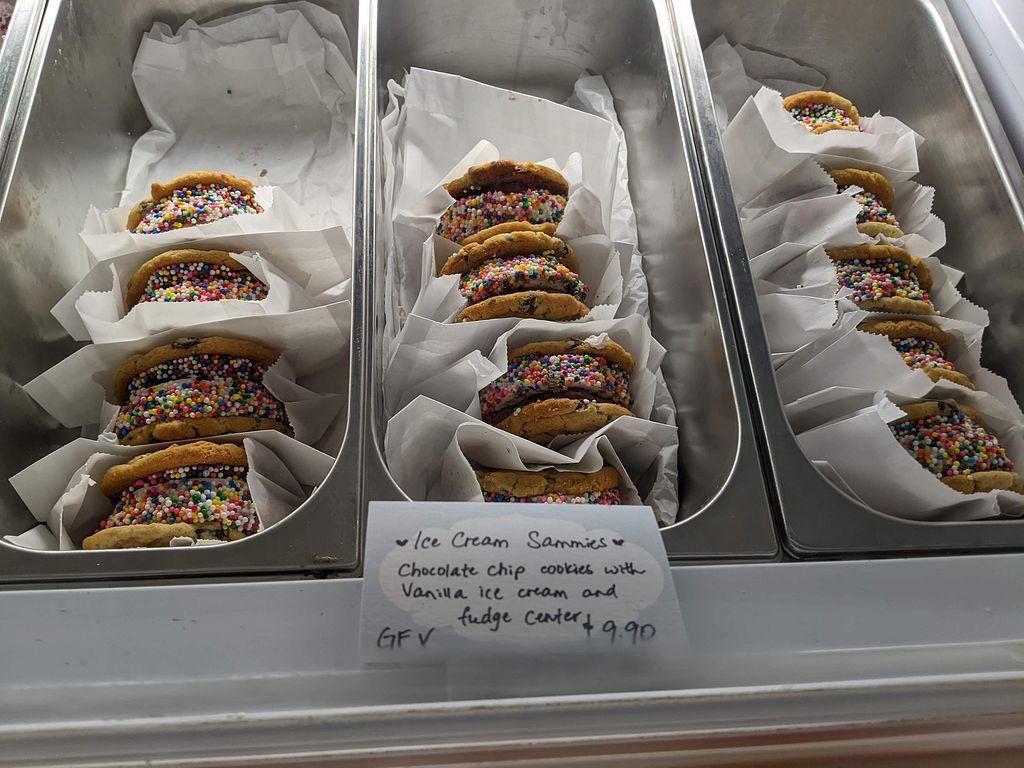 ♥ Ice Cream Sammies ♥
Chocolate chip cookies with
Vanilla ice cream and
fudge center
GF V $9.90